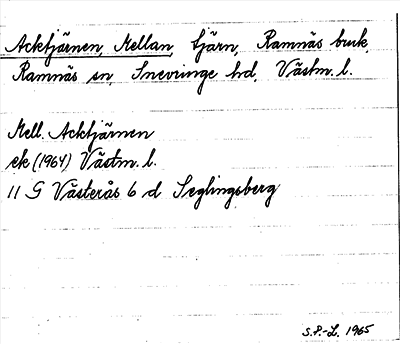 Acktjärnen, Mellan, tjärn, Ramnäs bruk,
Ramnäs sn, Snevringe hd, Västm. l.
Mell. Acktjärnen
ek (1964) Västm. l.
11 G Västerås 6 d Seglingsberg
S.P.-L. 1965